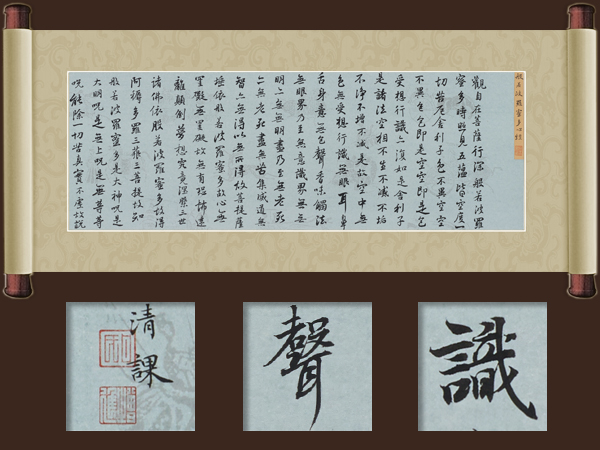 般若波羅蜜多心經
觀自在菩薩行深般若波羅
蜜多時照見五蘊皆空度一
切苦厄舍利子色不異空空
不異色色即是空空即是色
受想行識亦復如是舍利子
是諸法空相不生不滅不垢
不淨不增不減是故空中無
色無受想行識無眼耳鼻
舌身意無色聲香味觸法
無眼界乃至無意識界無無
明亦無無明盡乃至無老死
亦無老死盡無苦集滅道無
智亦無得以無所得故菩提薩
埵依般若波羅蜜多故心無
罣礙無罣礙故無有恐怖遠
離顛倒夢想究竟涅槃三世
諸佛依般若波羅蜜多故得
阿耨多羅三藐三菩提故知
般若波羅蜜多是大神呪是
大明呪是無上呪是無等等
呪能除一切苦真實不虛故說
清課
聲
識